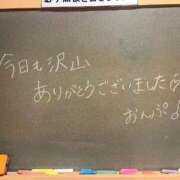 今日も沢山
ありがとうございました
おんぷ♪